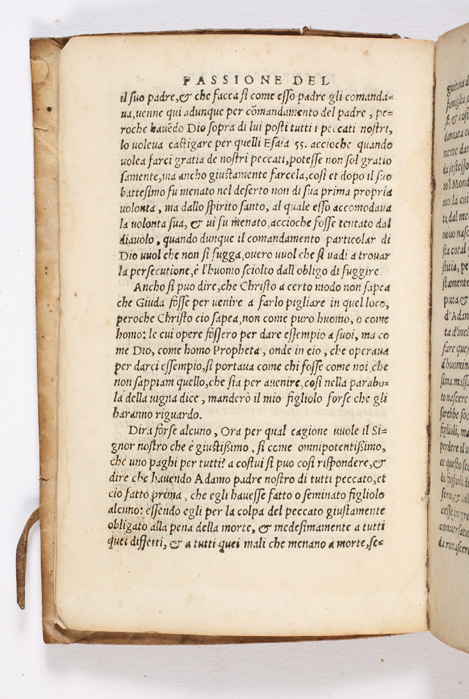 PASSIONE DEL
il suo padre, & che facca si come esso padre gli comanda-
ua, uenne qui adunque per cõmandamento del padre, pe-
roche hauẽdo Dio sopra di lui posti tutti i peccati nostri,
lo uoleua castigare per quelli Esaia 55. accioche quando
uolea farci gratia de nostri peccati, potesse non sol gratio
samente, ma ancho giustamente farcela, cosi et dopo il suo
battesimo fu menato nel deserto non di sua prima propria
uolonta, ma dallo spirito santo, al quale esso accomodaua
la uolonta sua, & ui fu menato, accioche fosse tentato dal
diauolo, quando dunque il comandamento particolar di
Dio uuol che non si fugga, ouero uuol che si uadi a trouar
la persecutione, è l'huomo sciolto dall obligo di fuggire.
Ancho si puo dire, che Christo a certo modo non sapea
che Giuda fosse per uenire a farlo pigliare in quel loco,
peroche Christo cio sapea, non come puro huomo, o come
homo: le cui opere fossero per dare essempio a suoi, ma co
me Dio, come homo Propheta, onde in cio, che operaua
per darci essempio, si portaua come chi fosse come noi, che
non sappiam quello, che sia per auenire, cosi nella parabo-
la della uigna dice, manderò il mio figliolo forse che gli
haranno riguardo.
Dira forse alcuno, Ora per qual cagione uuole il Si-
gnor nostro che è giustißimo, si come omnipotentißimo,
che uno paghi per tutti? a costui si puo cosi rispondere, &
dire che hauendo Adamo padre nostro di tutti peccato, et
cio fatto prima, che egli hauesse fatto o seminato figliolo
alcuno: essendo egli per la colpa del peccato giustamente
obligato alla pena della morte, & medesimamente a tutti
quei diffetti, & a tutti quei mali che menano a morte, se-